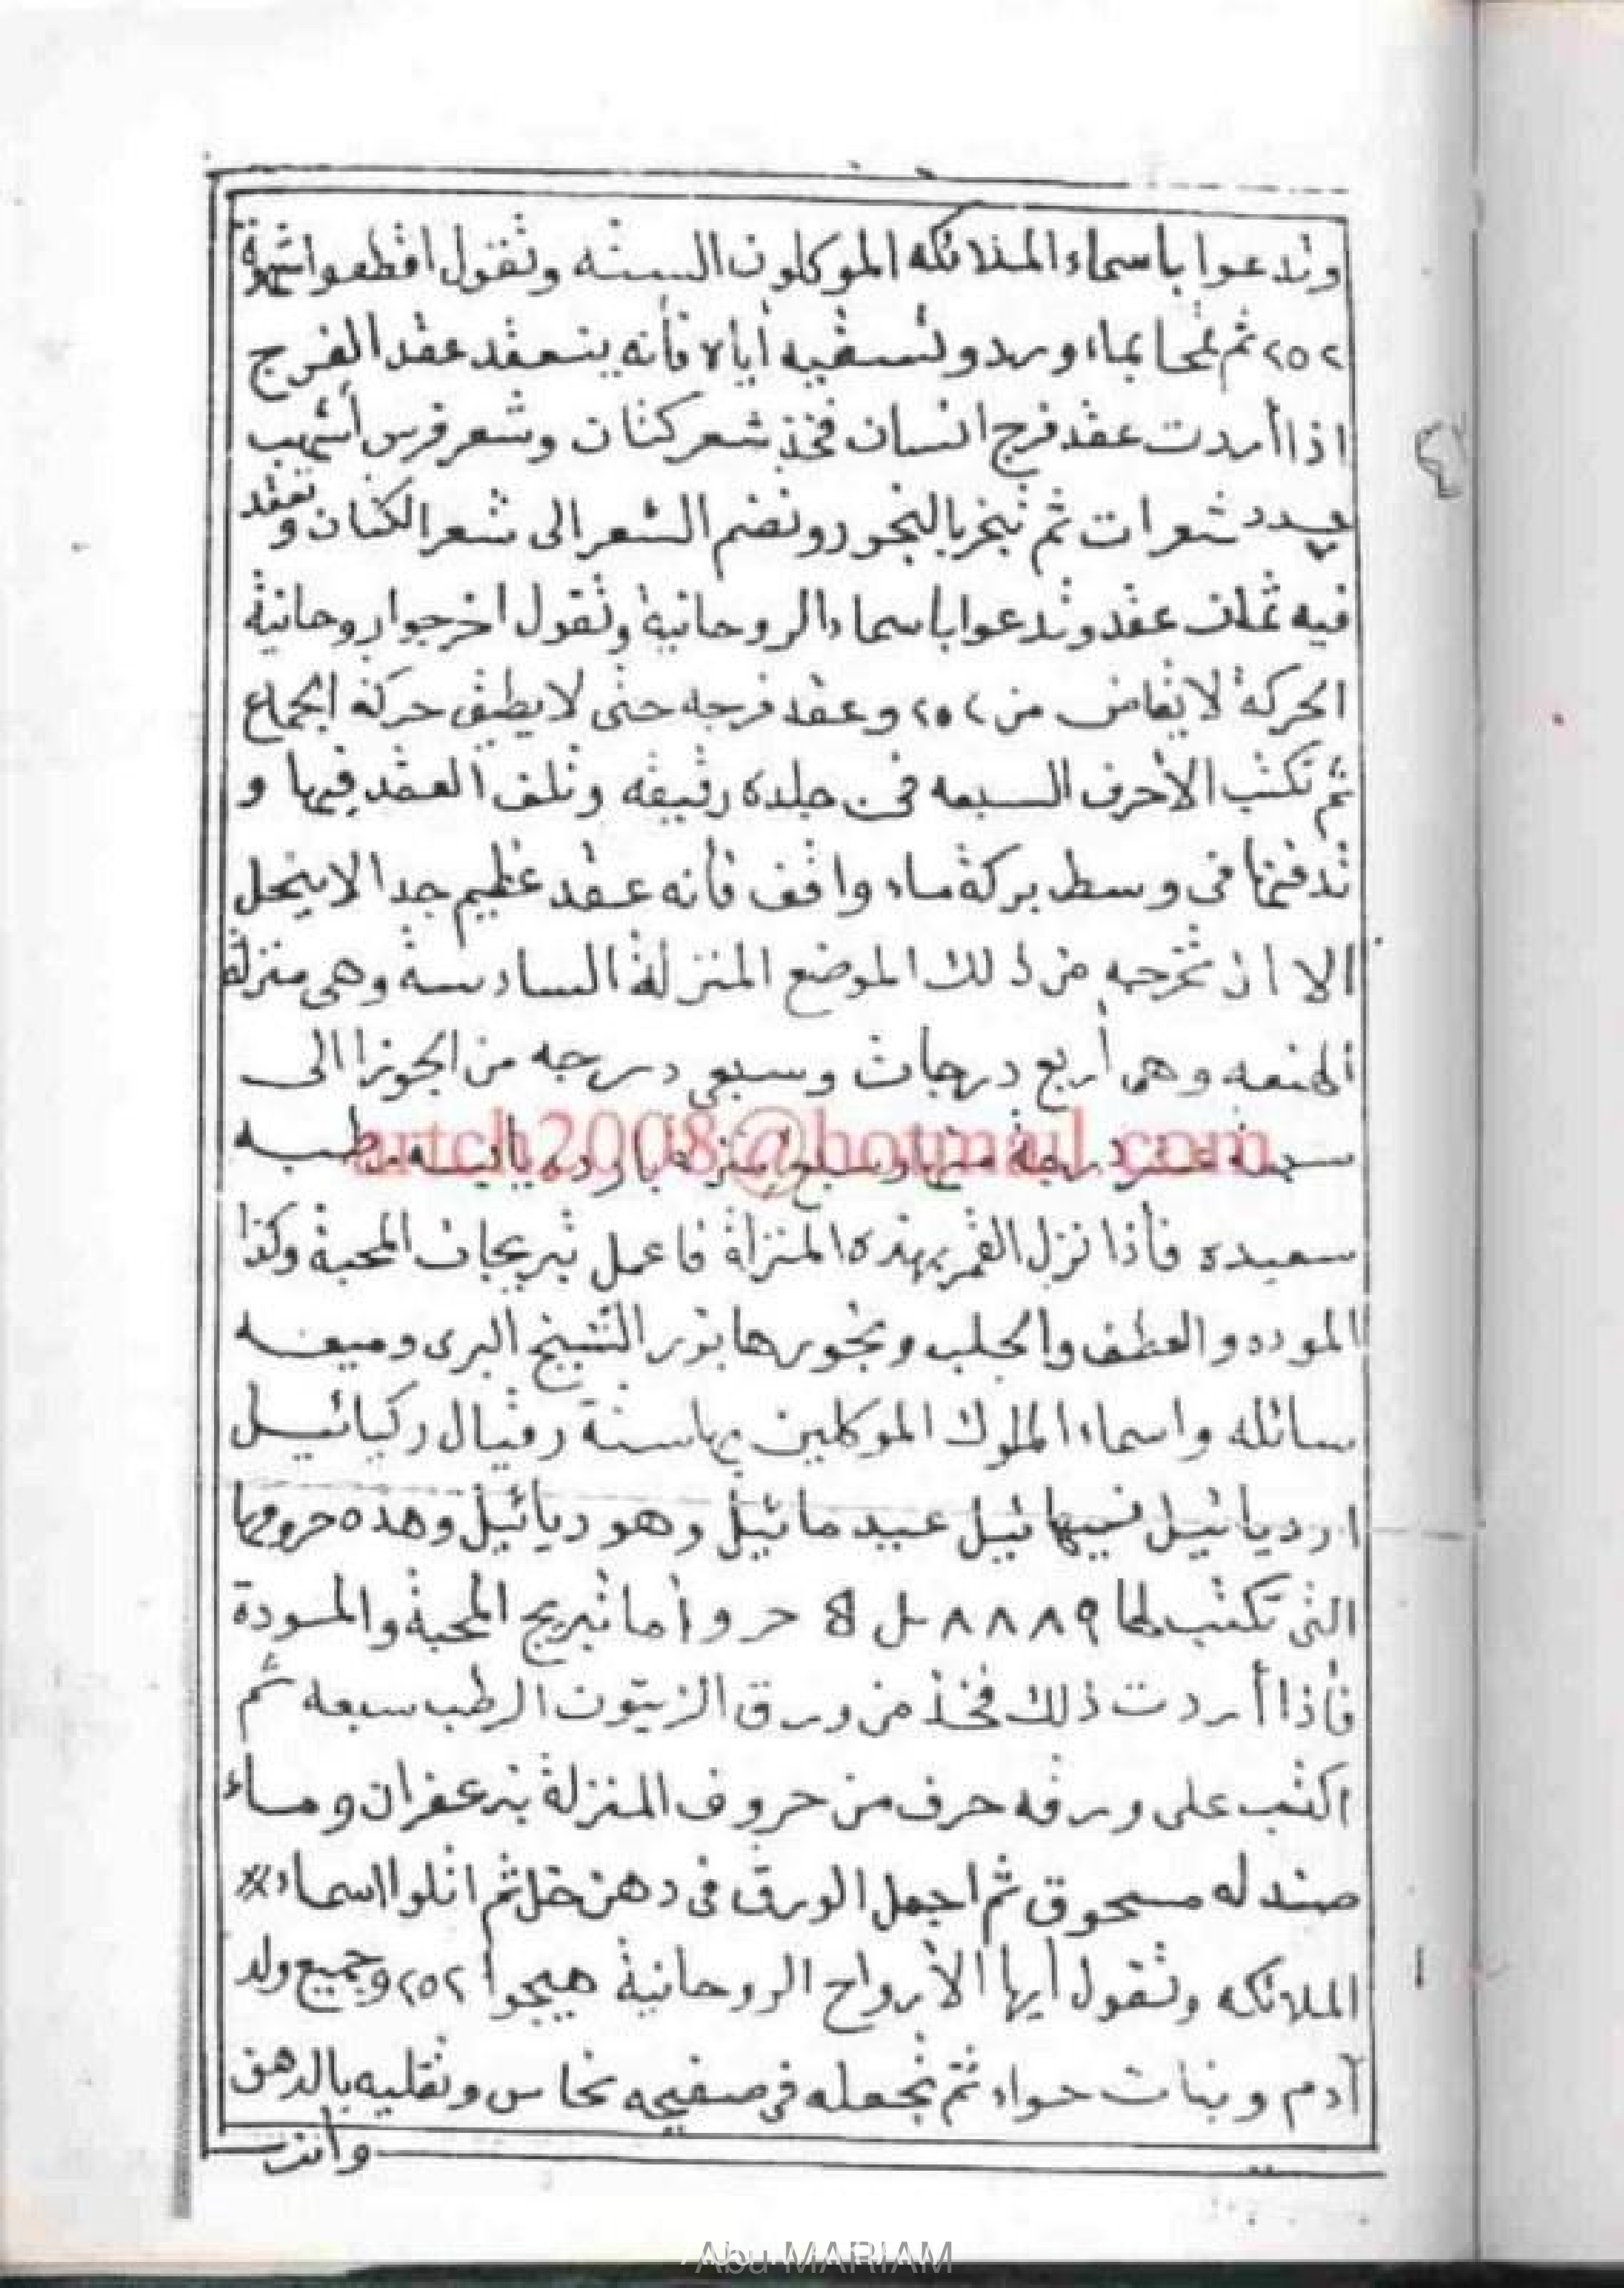 وتدعوا باسماء الملائكه الموكلون السته وتقول اقطعوا شهوة
٢٥٢ ثم تمحا بماء ورد وتسقيه أيالا فأنه ينعقد عقد الفرج
اذا أردت عقد فرج انسان فخذ شعر كتان وشعر فرس أشهب
شعرات ثم تبخر بالبخور وتضم الشعر الى شعر الكتان وتعقد
فيه ثمان عقد وتدعوا باسماء الروحانية وتقول اخرجوا روحانية
الحركة من ٢٥٢ وعقد فرجه حتى لا يطيق حركة الجماع
ثم تكتب الأحرف السبعه فى جلده رقيقه وتلف العقد فيها و
تدفنها فى وسط بركة ماء واقف فأنه عقد عظيم جدا لا ينحل
الا ان تخرجه من ذلك الموضع المنزلة السادسة وهى منزلة
الهنعه وهى أربع درجات وسبعى درجه من الجوزا الى
درجة منها وسبع رطبه
artch2008@hotmail.com
سعيده فأذا نزل القمر بهذه المنزلة فاعمل تبريجات المحبة وكذا
الموده والعطف والجلب وبخورها بزر الشيح البرى وميعه
سائله واسماء الملوك الموكلين بها ستة رفيال ركيائيل
ارديائيل عبيد مائيل وهو ديائيل وهذه حروفها
التى تكتب لها ٨٨٨٩ حر و أما تبريج المحبة والمودة
فأذا أردت ذلك فخذ من ورق الزيتون الرطب سبعه ثم
اكتب على ورقه حرف من حروف المنزلة بزعفران وماء
صندله مسحوق ثم اجعل الورق فى دهن خل ثم اتلوا اسماء
الملائكه وتقول أيها الأرواح الروحانية هيجوا ٢٥٢ وجميع ولد
آدم وبنات حواء ثم تجعله فى صفيحه نحاس وتقليه بالدهن
وأنت
Abu MARIAM